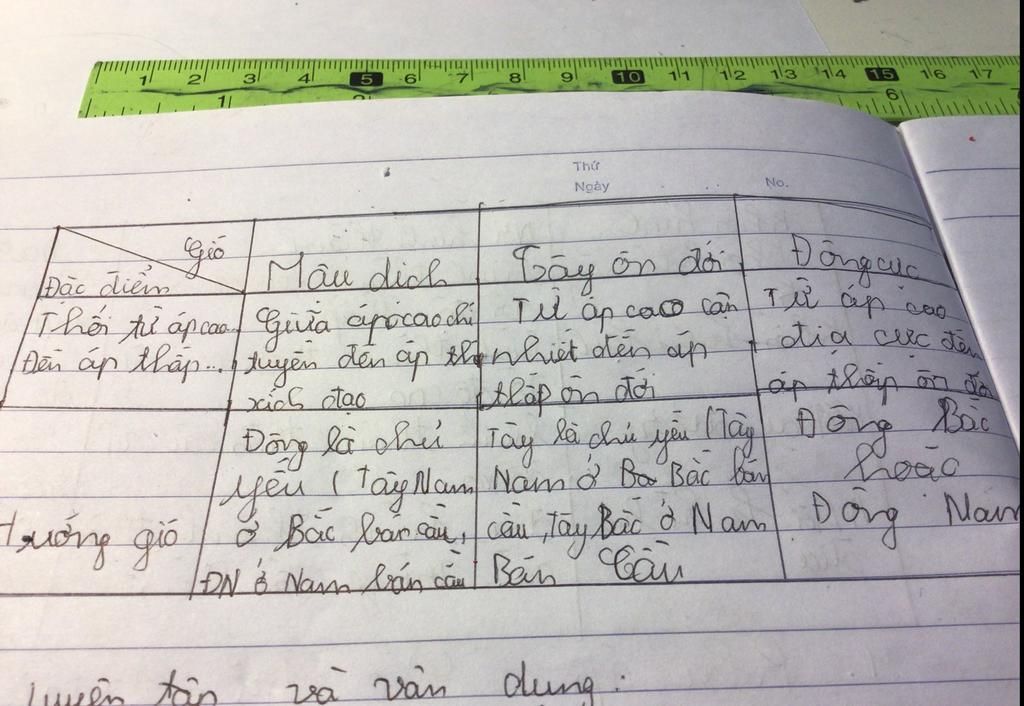 1 2 3 4 5 6 7 8 9 10 11 12 13 14 15 16 17
1 2 6
Thứ
Ngày No.
Gió
Đặc điểm
Mậu dịch
Tây ôn đới
Đông cực
Thổi từ áp cao
Đến áp thấp...
Giữa áp cao chí
tuyến đến áp th
xích đạo
Từ áp cao cận
nhiệt đến áp
thấp ôn đới
Từ áp cao
địa cực đến
áp thấp ôn đớ
Hướng gió
Đông là chủ
yếu (Tây Nam
ở Bắc bán cầu,
ĐN ở Nam bán cầu
Tây là chủ yếu (Tây
Nam ở Ba Bắc bán
cầu, Tây Bắc ở Nam
Bán Cầu
Đông Bắc
hoặc
Đông Nam
luyện tập và vận dụng: